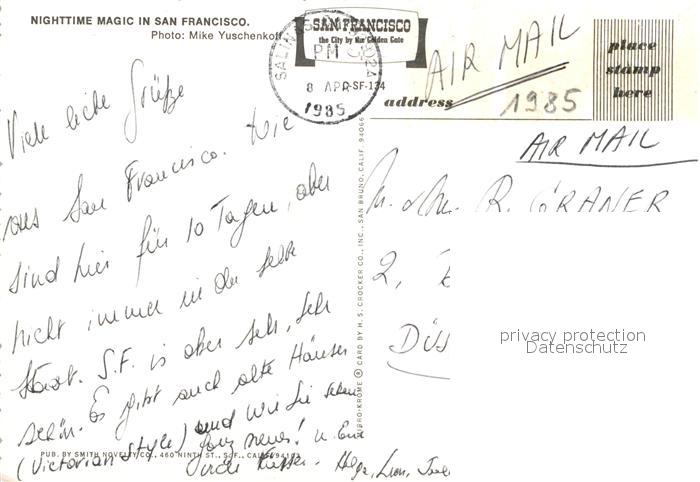 NIGHTTIME MAGIC IN SAN FRANCISCO.
Photo: Mike Yuschenkoff
SAN FRANCISCO
the City by the Golden Gate
PM
8 APR
1985
SF-134
AIR MAIL
place
stamp
here
address
1985
AIR MAIL
Viele liebe Grüße
aus San Francisco. Wir
sind hier für 10 Tagen, aber
nicht immer in der selbe
Stadt. S.F. is aber sehr, sehr
schön. Es gibt auch alte Häuser
(Victorian Style) und wie Sie sehen
ganz neues!
R. GRANER
2,
DÜS
privacy protection
Datenschutz
CARD BY H. S. CROCKER CO., INC., SAN BRUNO, CALIF. 94066
PUB. BY SMITH NOVELTY CO., 460 NINTH ST., S.F., CALIF. 94103